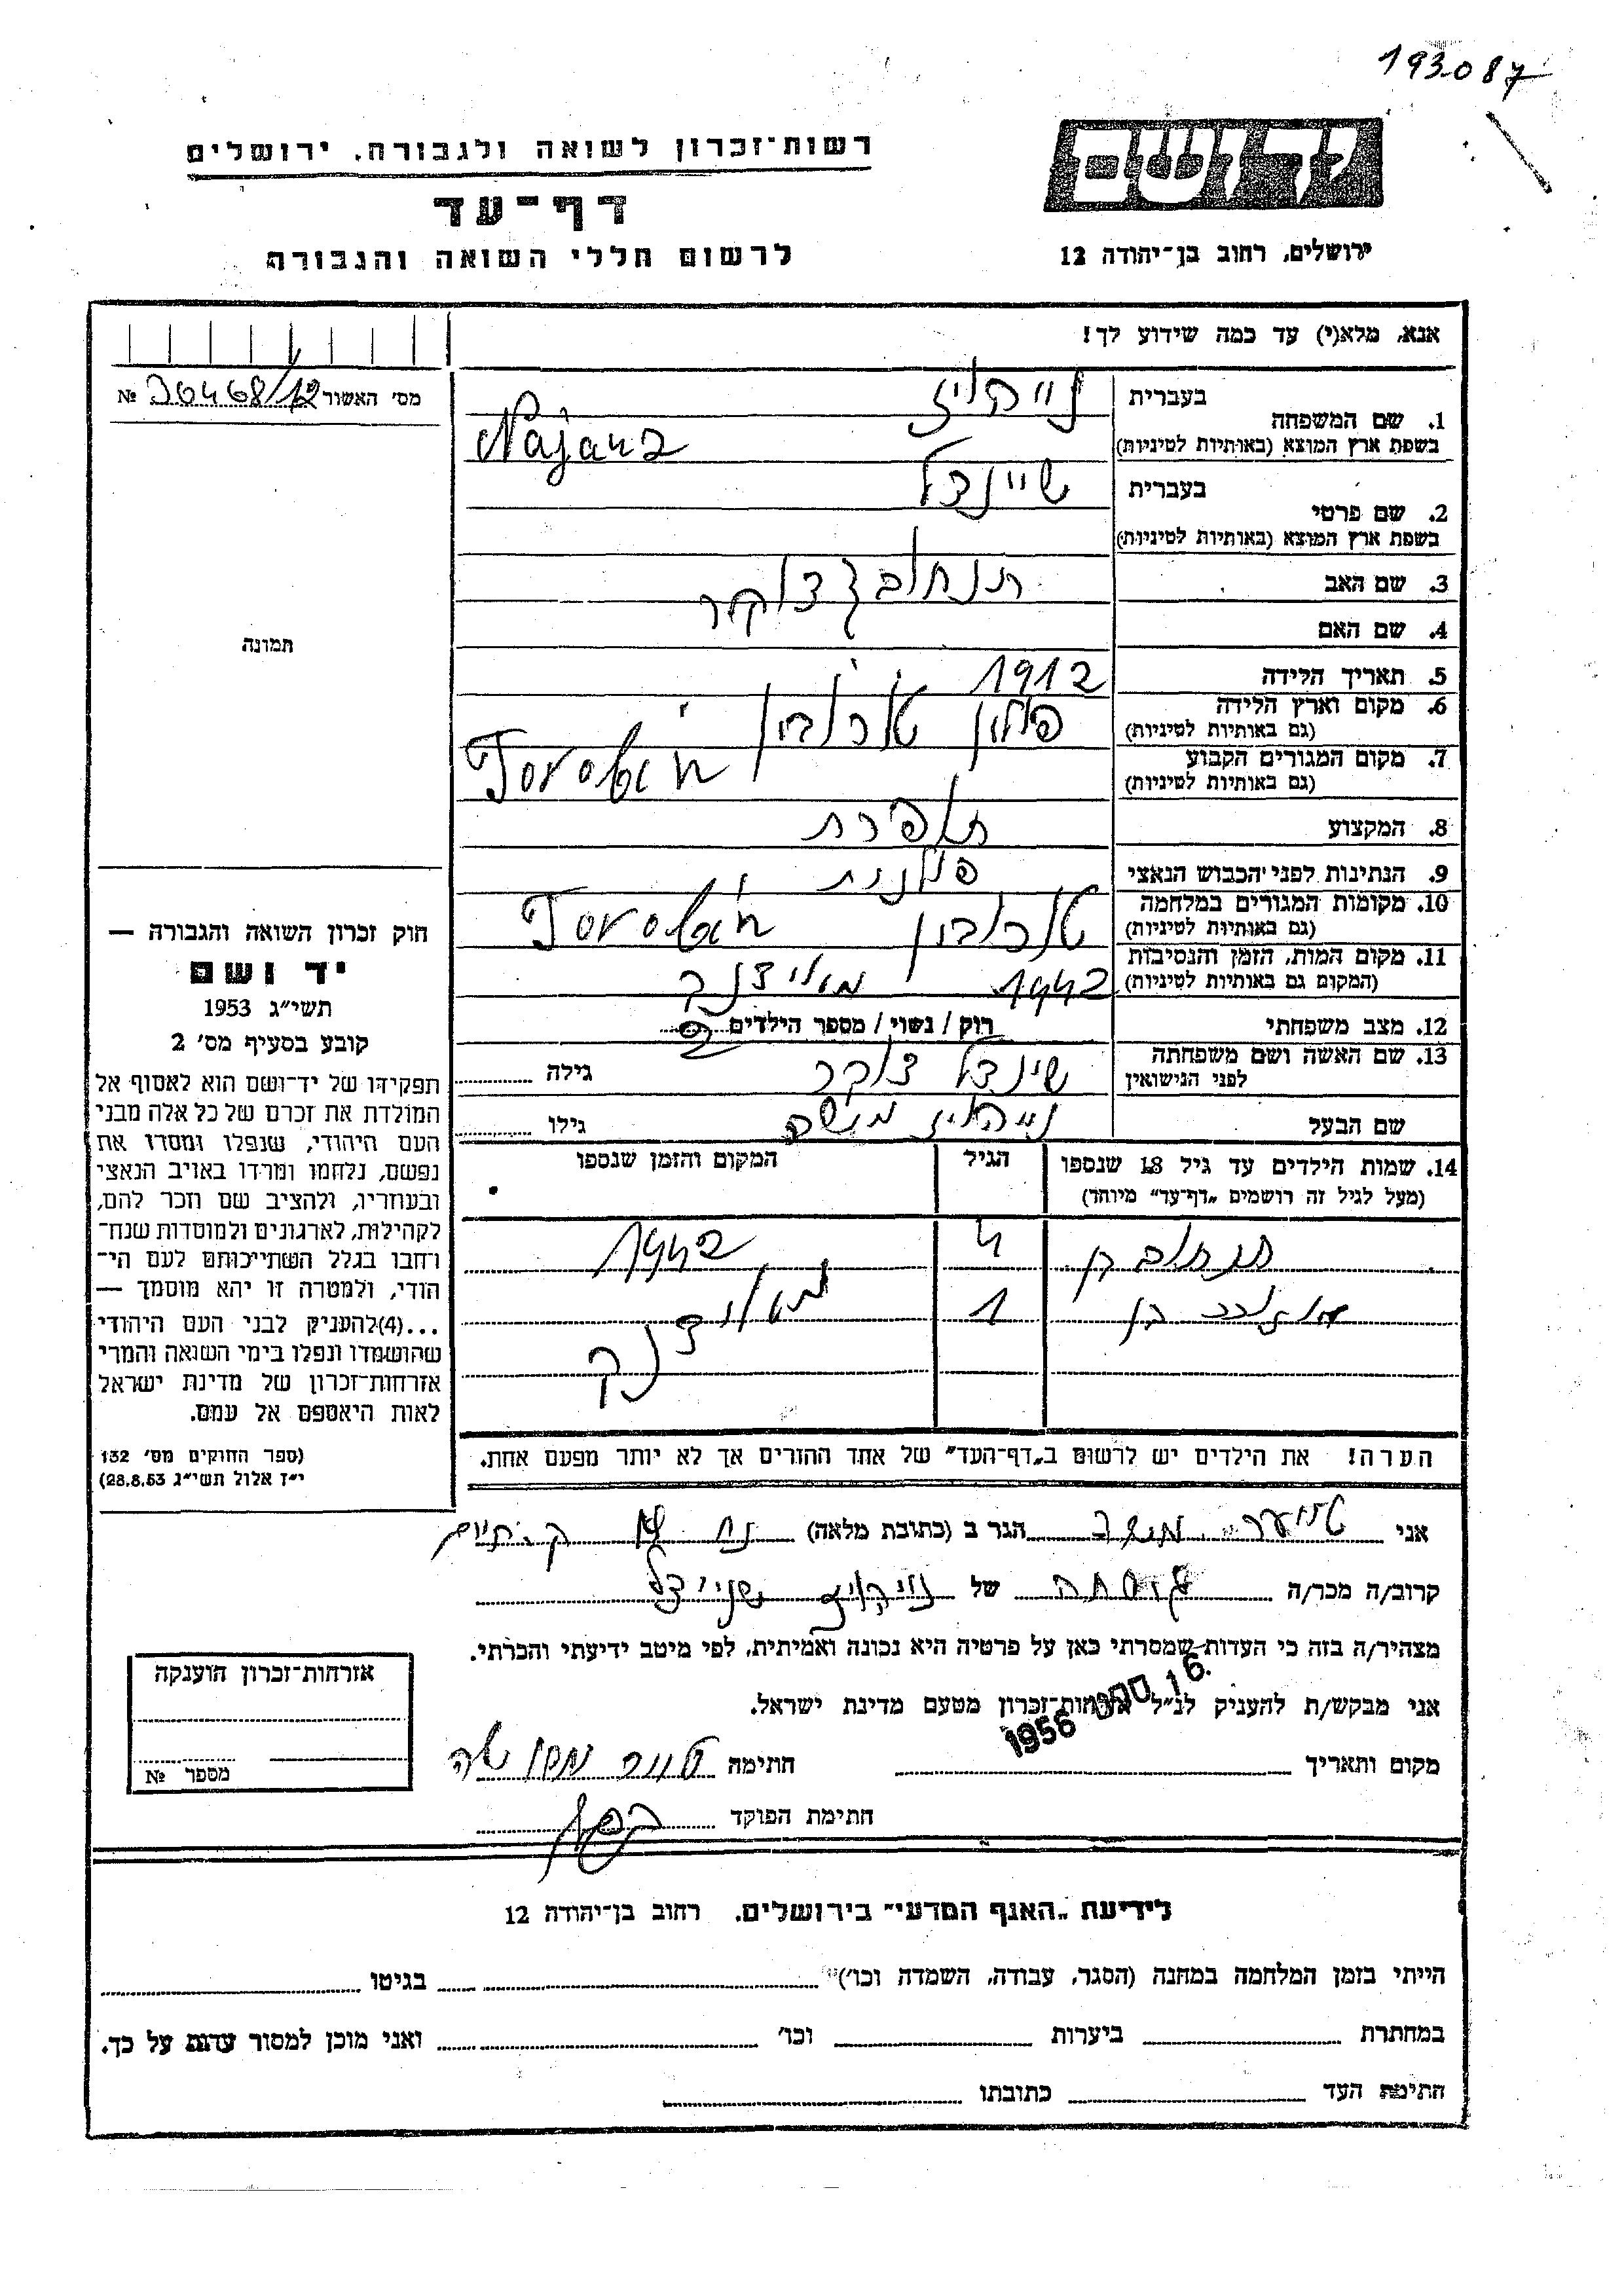 193087
רשות־זכרון לשואה ולגבורה, ירושלים
יד ושם
דף־עד
לרשום חללי השואה והגבורה
ירושלים, רחוב בן־יהודה 12
אנא, מלא(י) עד כמה שידוע לך!
מס' האשור 30468/12 №
תמונה
1. שם המשפחה
בעברית
בשפת ארץ המוצא (באותיות לטיניות)
2. שם פרטי
בעברית שיינדל
בשפת ארץ המוצא (באותיות לטיניות)
3. שם האב תנחום צוקר
4. שם האם
5. תאריך הלידה 1912
6. מקום וארץ הלידה פולין
(גם באותיות לטיניות)
7. מקום המגורים הקבוע
(גם באותיות לטיניות) Torobin
8. המקצוע תופרת
9. הנתינות לפני הכבוש הנאצי פולנית
10. מקומות המגורים במלחמה
(גם באותיות לטיניות) טורובין Torobin
11. מקום המות, הזמן והנסיבות 1942 מאיידנק
(המקום גם באותיות לטיניות)
12. מצב משפחתי רוק / נשוי / מספר הילדים 2
13. שם האשה ושם משפחתה שינדל צוקר גילה
לפני הנישואין
שם הבעל משה גילו
14. שמות הילדים עד גיל 18 שנספו הגיל המקום והזמן שנספו
(מעל לגיל זה רושמים „דף־עד" מיוחד)
בן 4 1942
בן 1 מאיידנק
הערה! את הילדים יש לרשום ב„דף־העד" של אחד ההורים אך לא יותר מפעם אחת.
חוק זכרון השואה והגבורה —
יד ושם
תשי"ג 1953
קובע בסעיף מס' 2
תפקידו של יד־ושם הוא לאסוף אל
המולדת את זכרם של כל אלה מבני
העם היהודי, שנפלו ומסרו את
נפשם, נלחמו ומרדו באויב הנאצי
ובעוזריו, ולהציב שם וזכר להם,
לקהילות, לארגונים ולמוסדות שנח־
רחבו בגלל השתייכותם לעם הי־
הודי, ולמטרה זו יהא מוסמך —
...(4)להעניק לבני העם היהודי
שהושמדו ונפלו בימי השואה והמרי
אזרחות־זכרון של מדינת ישראל
לאות היאספם אל עמם.
(ספר החוקים מס' 132
י"ז אלול תשי"ג 28.8.53)
אני הגר ב (כתובת מלאה)
קרוב/ה מכר/ה של שיינדל
מצהיר/ה בזה כי העדות שמסרתי כאן על פרטיה היא נכונה ואמיתית, לפי מיטב ידיעתי והכרתי.
אני מבקש/ת להעניק לנ"ל אזרחות־זכרון מטעם מדינת ישראל.
16 ספט 1956
מקום ותאריך חתימה
חתימת הפוקד
אזרחות־זכרון הוענקה
מספר №
לידיעת „האגף המדעי" בירושלים. רחוב בן־יהודה 12
הייתי בזמן המלחמה במחנה (הסגר, עבודה, השמדה וכו') בגיטו
במחתרת ביערות וכו' ואני מוכן למסור עדות על כך.
חתימת העד כתובתו